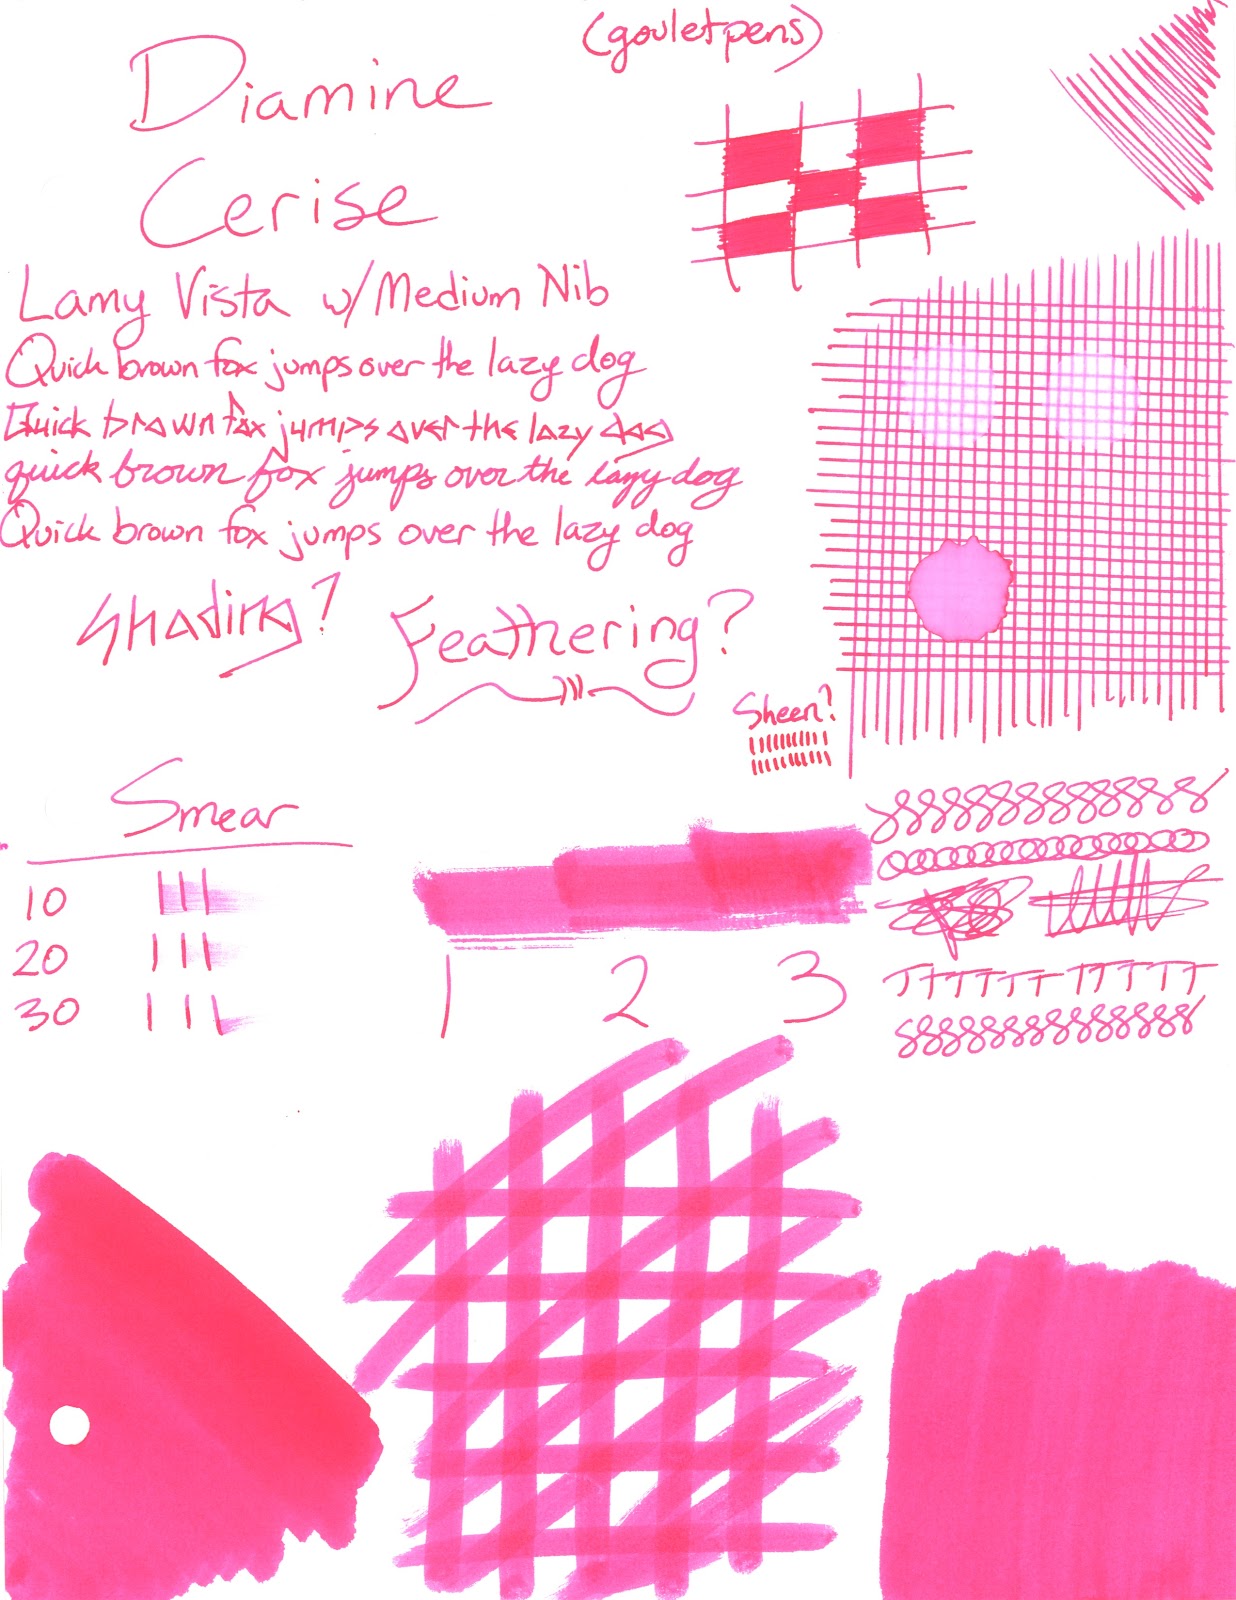 (gouletpens)
Diamine
Cerise
Lamy Vista w/Medium Nib
Quick brown fox jumps over the lazy dog
Quick brown fox jumps over the lazy dog
quick brown fox jumps over the lazy dog
Quick brown fox jumps over the lazy dog
Shading?
Feathering?
Sheen?
Smear
10
20
30
1 2 3